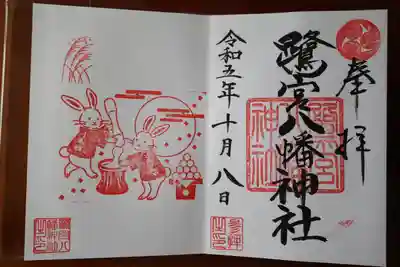 奉拝
鷺宮八幡神社
令和五年十月八日